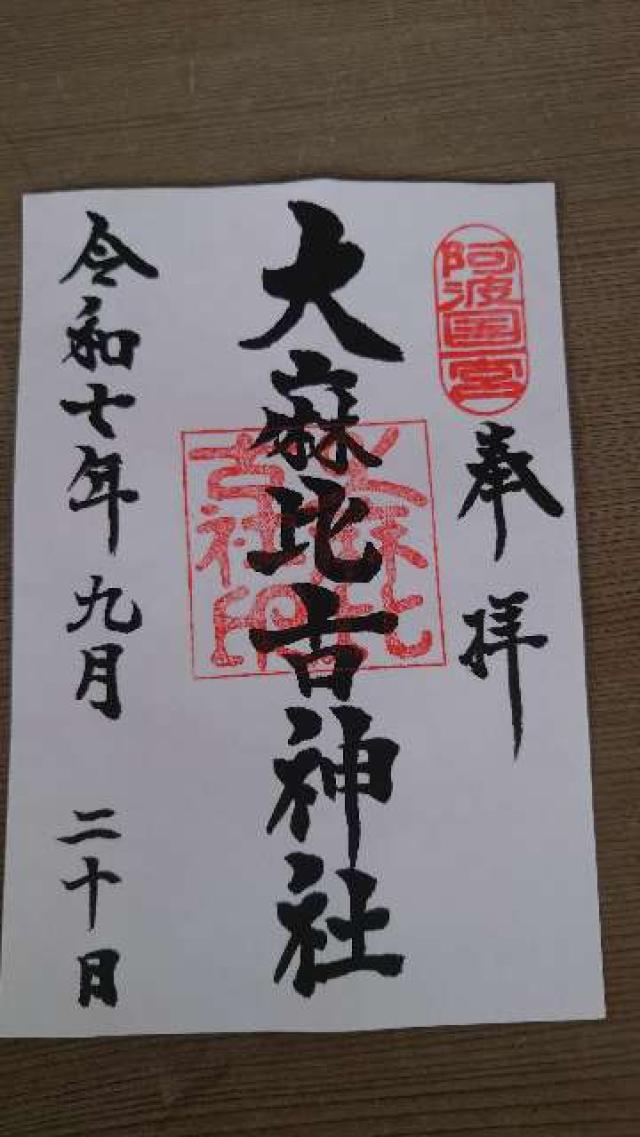 阿波国一宮
奉拝
大麻比古神社
大麻比古社印
令和七年九月二十日